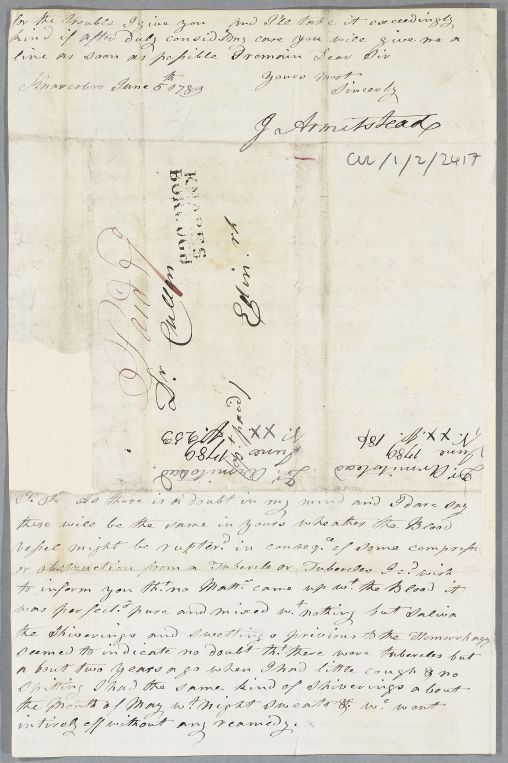 for the trouble I give you and I'll take it exceedingly
kind if after duly considg my case you will give me a
line as soon as possible I remain Dear Sir
Yours most
Knaresbro June 5th 1789
Sincerely
J Armitstead
CUL/1/2/2417
KNARES
BOROUGH
Paid
Dr Cullen
Edin.
paid
Dr Armitstead
June 1789
N. XX
p. 253
Dr Armitstead
June 1789
N. XX. p. 186
P. S. As there is a doubt in my mind and I dare say
there will be the same in yours wheather the Blood
vessel might be rupter'd in conseqce of some compressn
or obstruction from a Tubercle or Tubercles I cd wish
to inform you tht no Mattr came up wt the Blood it
was perfectly pure and mixed wt nothing but Saliva
the Shiverings and sweatings previous to the Hemorrhagy
seemed to indicate no doubt tht there were tubercles but
about two Years ago when I had little cough & no
Spitting I had the same kind of Shiverings about
the Month of May wt Night sweats & wc went
intirely off without any reamedy.